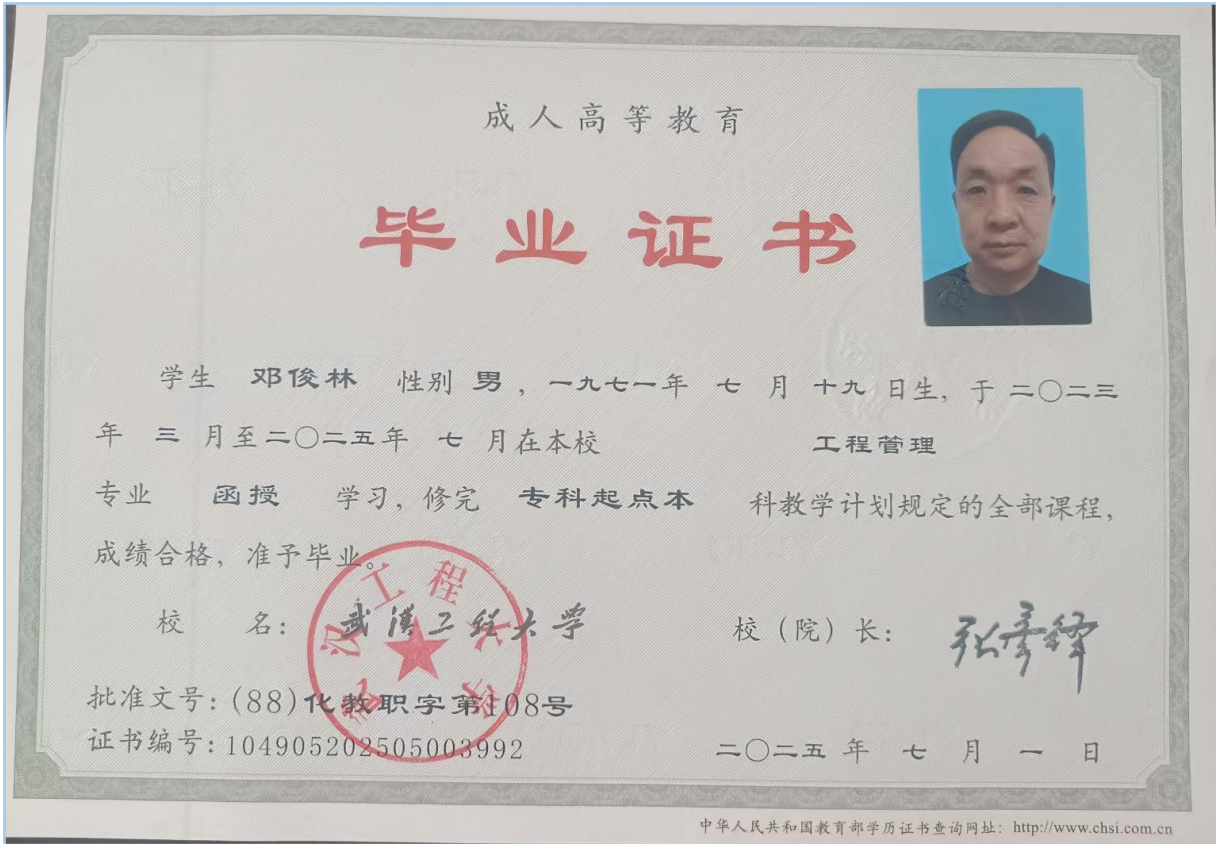 成人高等教育
毕业证书
学生 邓俊林 性别 男，一九七一年 七 月 十九 日生，于 二〇二三
年 三 月至二〇二五年 七 月在本校 工程管理
专业 函授 学习，修完 专科起点本 科教学计划规定的全部课程，
成绩合格，准予毕业。
校 名：武汉工程大学 校（院）长：
武汉工程大学
批准文号：(88)化教职字第108号
证书编号：104905202505003992 二〇二五 年 七 月 一 日
中华人民共和国教育部学历证书查询网址：http://www.chsi.com.cn